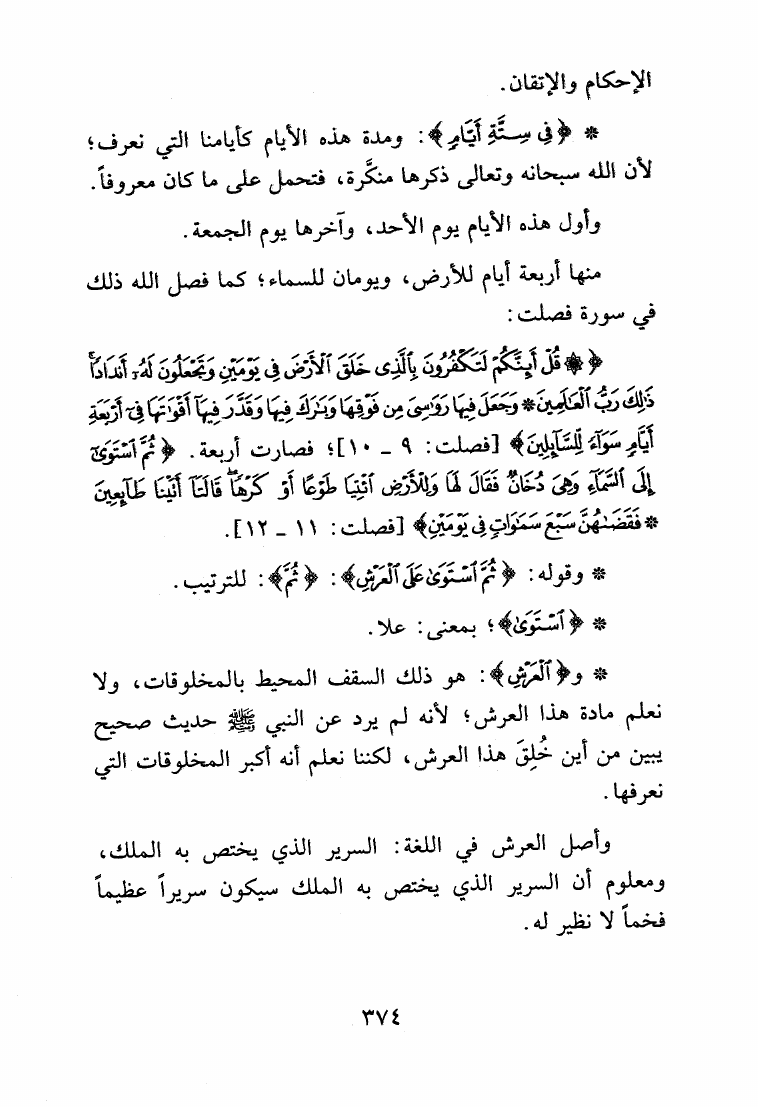 الإحكام والإتقان.
* ﴿فِي سِتَّةِ أَيَّامٍ﴾: ومدة هذه الأيام كأيامنا التي نعرف؛
لأن الله سبحانه وتعالى ذكرها منكَّرة، فتحمل على ما كان معروفاً.
وأول هذه الأيام يوم الأحد، وآخرها يوم الجمعة.
منها أربعة أيام للأرض، ويومان للسماء؛ كما فصل الله ذلك
في سورة فصلت:
﴿۞ قُلْ أَئِنَّكُمْ لَتَكْفُرُونَ بِالَّذِي خَلَقَ الْأَرْضَ فِي يَوْمَيْنِ وَتَجْعَلُونَ لَهُۥ أَندَادًا ۚ
ذَٰلِكَ رَبُّ الْعَٰلَمِينَ * وَجَعَلَ فِيهَا رَوَٰسِيَ مِن فَوْقِهَا وَبَٰرَكَ فِيهَا وَقَدَّرَ فِيهَآ أَقْوَٰتَهَا فِيٓ أَرْبَعَةِ
أَيَّامٍ سَوَآءً لِّلسَّآئِلِينَ﴾ [فصلت: ٩ ـ ١٠]؛ فصارت أربعة. ﴿ثُمَّ ٱسْتَوَىٰٓ
إِلَى ٱلسَّمَآءِ وَهِيَ دُخَانٌ فَقَالَ لَهَا وَلِلْأَرْضِ ٱئْتِيَا طَوْعًا أَوْ كَرْهًا ۖ قَالَتَآ أَتَيْنَا طَآئِعِينَ
* فَقَضَىٰهُنَّ سَبْعَ سَمَٰوَاتٍ فِي يَوْمَيْنِ﴾ [فصلت: ١١ ـ ١٢].
* وقوله: ﴿ثُمَّ ٱسْتَوَىٰ عَلَى ٱلْعَرْشِ﴾: ﴿ثُمَّ﴾: للترتيب.
* ﴿ٱسْتَوَىٰ﴾؛ بمعنى: علا.
* و﴿ٱلْعَرْشِ﴾: هو ذلك السقف المحيط بالمخلوقات، ولا
نعلم مادة هذا العرش؛ لأنه لم يرد عن النبي ﷺ حديث صحيح
يبين من أين خُلِقَ هذا العرش، لكننا نعلم أنه أكبر المخلوقات التي
نعرفها.
وأصل العرش في اللغة: السرير الذي يختص به الملك،
ومعلوم أن السرير الذي يختص به الملك سيكون سريراً عظيماً
فخماً لا نظير له.
٣٧٤